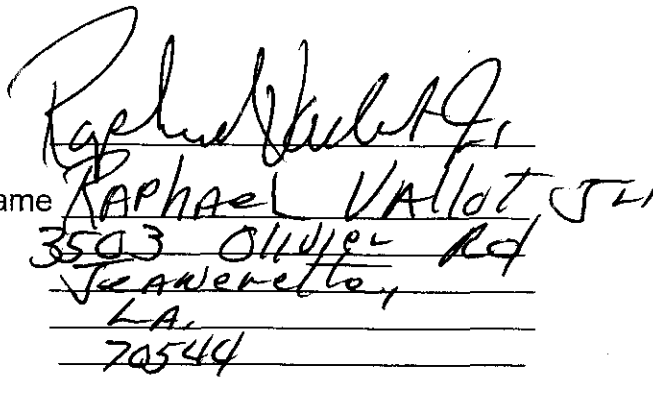 Raphael Vallot Jr.
ame RAPhAeL VAllot Jr.
3503 Olivier Rd
Jeanerette,
LA.
70544